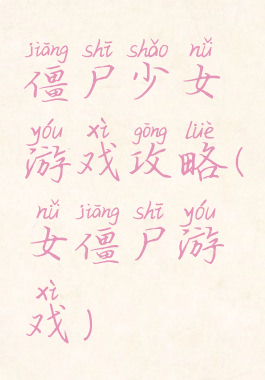 jiāng shī shǎo nǚ
僵尸少女
yóu xì gōng lüè
游戏攻略(
nǚ jiāng shī yóu
女僵尸游
xì
戏)